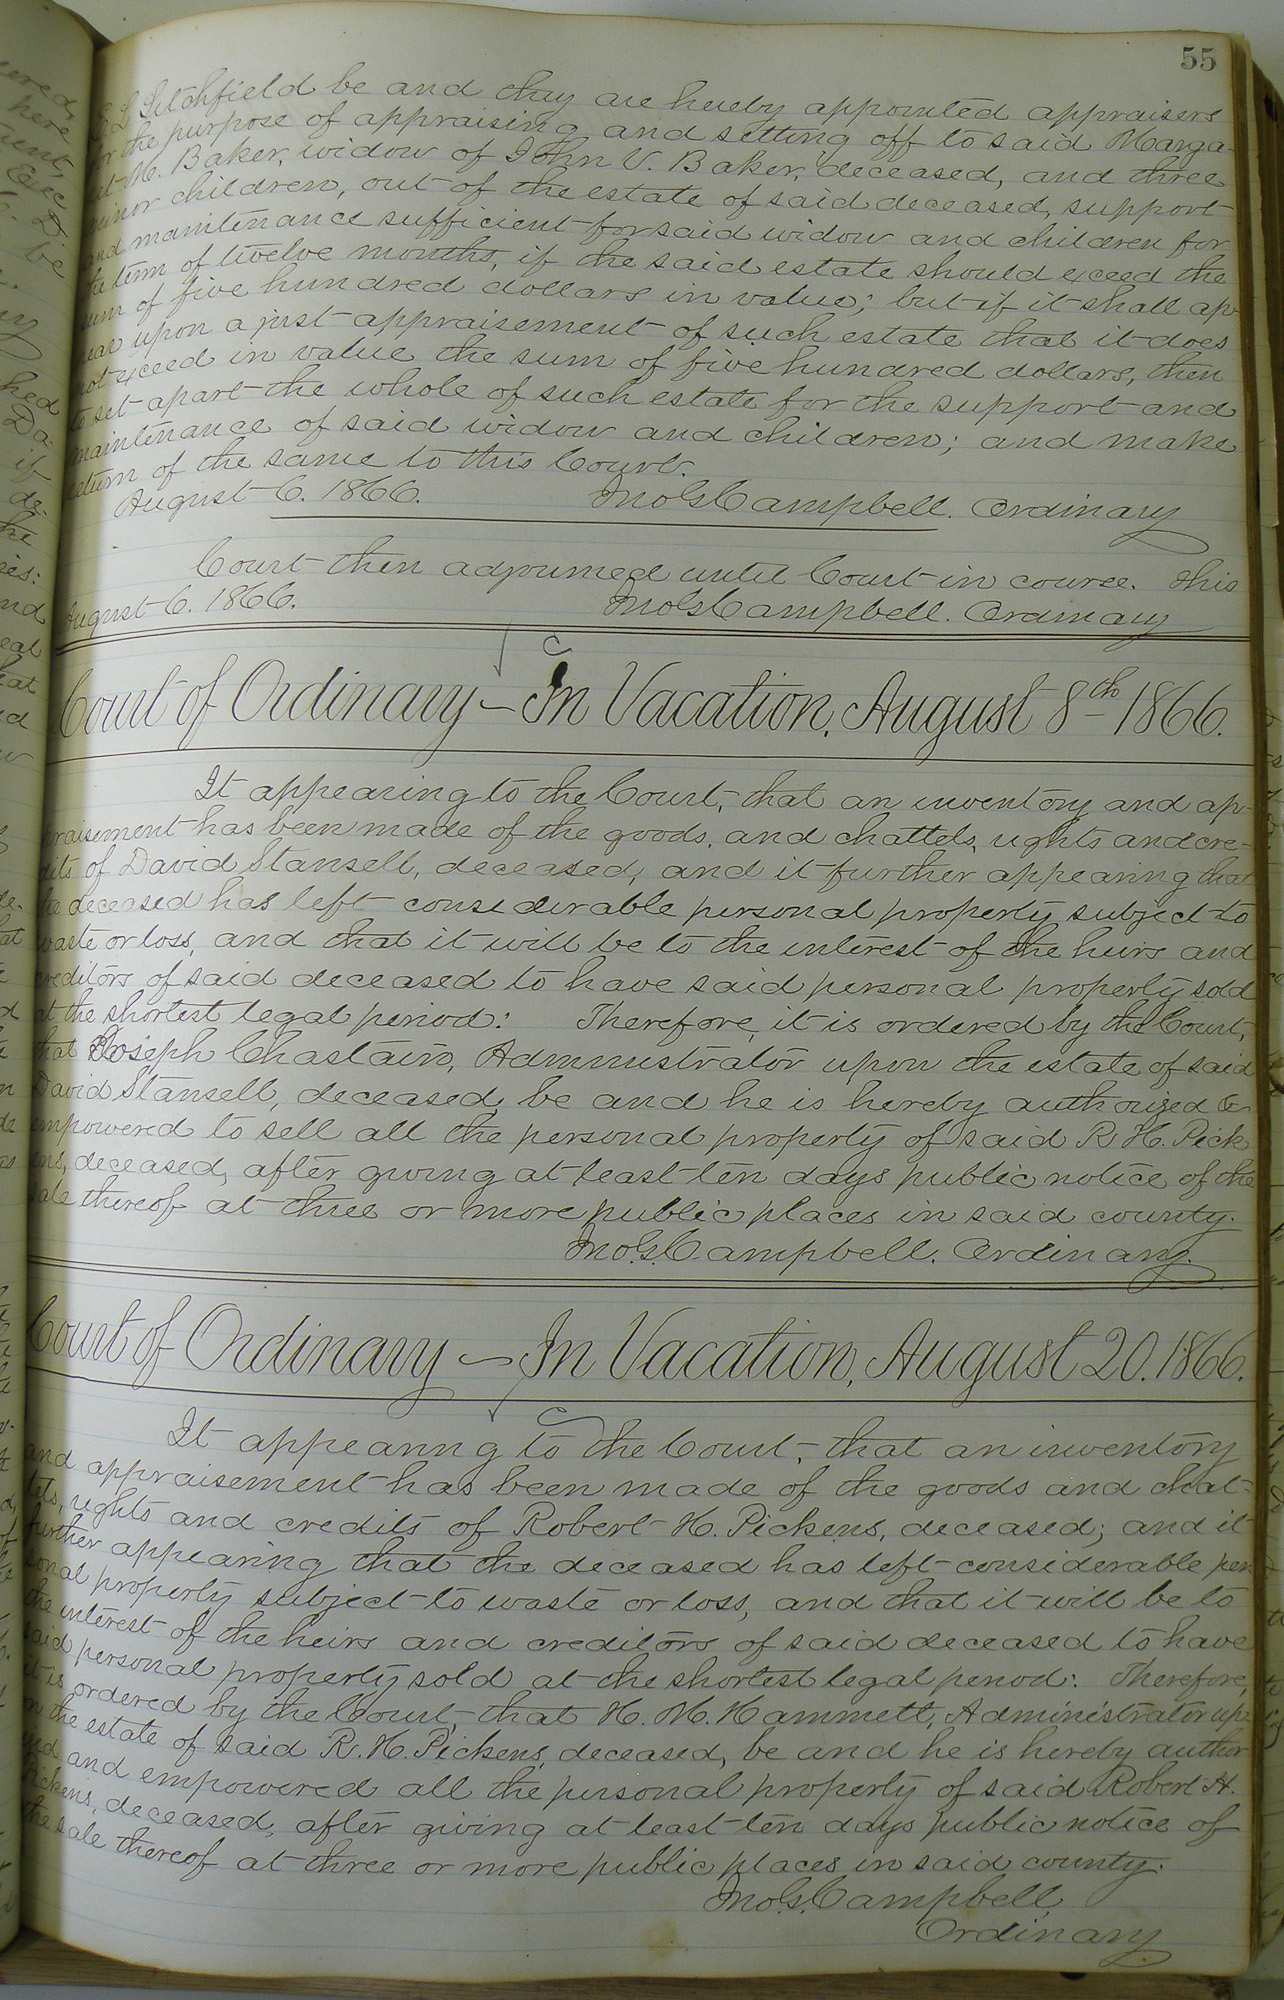 55
L. Litchfield be and they are hereby appointed appraisers
for the purpose of appraising and setting off to said Marga-
ret M. Baker, widow of John V. Baker, deceased, and three
minor children, out of the estate of said deceased, support
and maintenance sufficient for said widow and children for
the term of twelve months, if the said estate should exceed the
sum of five hundred dollars in value; but if it shall ap-
pear upon a just appraisement of such estate that it does
not exceed in value the sum of five hundred dollars, then
to set apart the whole of such estate for the support and
maintenance of said widow and children; and make
return of the same to this Court.
August 6. 1866. Jno. G. Campbell. Ordinary
Court then adjourned until Court in course. This
August 6. 1866. Jno. G. Campbell. Ordinary
Court of Ordinary – In Vacation, August 8th 1866.
It appearing to the Court, that an inventory and ap-
praisement has been made of the goods, and chattels, rights and cre-
dits of David Stansell, deceased, and it further appearing that
the deceased has left considerable personal property subject to
waste or loss, and that it will be to the interest of the heirs and
creditors of said deceased to have said personal property sold
at the shortest legal period: Therefore, it is ordered by the Court,
that Joseph Chastain, Administrator upon the estate of said
David Stansell, deceased, be and he is hereby authorized &
empowered to sell all the personal property of said R. H. Pick
ens, deceased, after giving at least ten days public notice of the
sale thereof at three or more public places in said county.
Jno. G. Campbell. Ordinary.
Court of Ordinary – In Vacation, August 20. 1866.
It appearing to the Court, that an inventory
and appraisement has been made of the goods and chat-
tels, rights and credits of Robert H. Pickens, deceased; and it
further appearing that the deceased has left considerable per
sonal property subject to waste or loss, and that it will be to
the interest of the heirs and creditors of said deceased to have
said personal property sold at the shortest legal period: Therefore,
it is ordered by the Court, that H. M. Hammett, Administrator up-
on the estate of said R. H. Pickens, deceased, be and he is hereby author
ized and empowered all the personal property of said Robert H.
Pickens, deceased, after giving at least ten days public notice of
the sale thereof at three or more public places in said county.
Jno. G. Campbell,
Ordinary